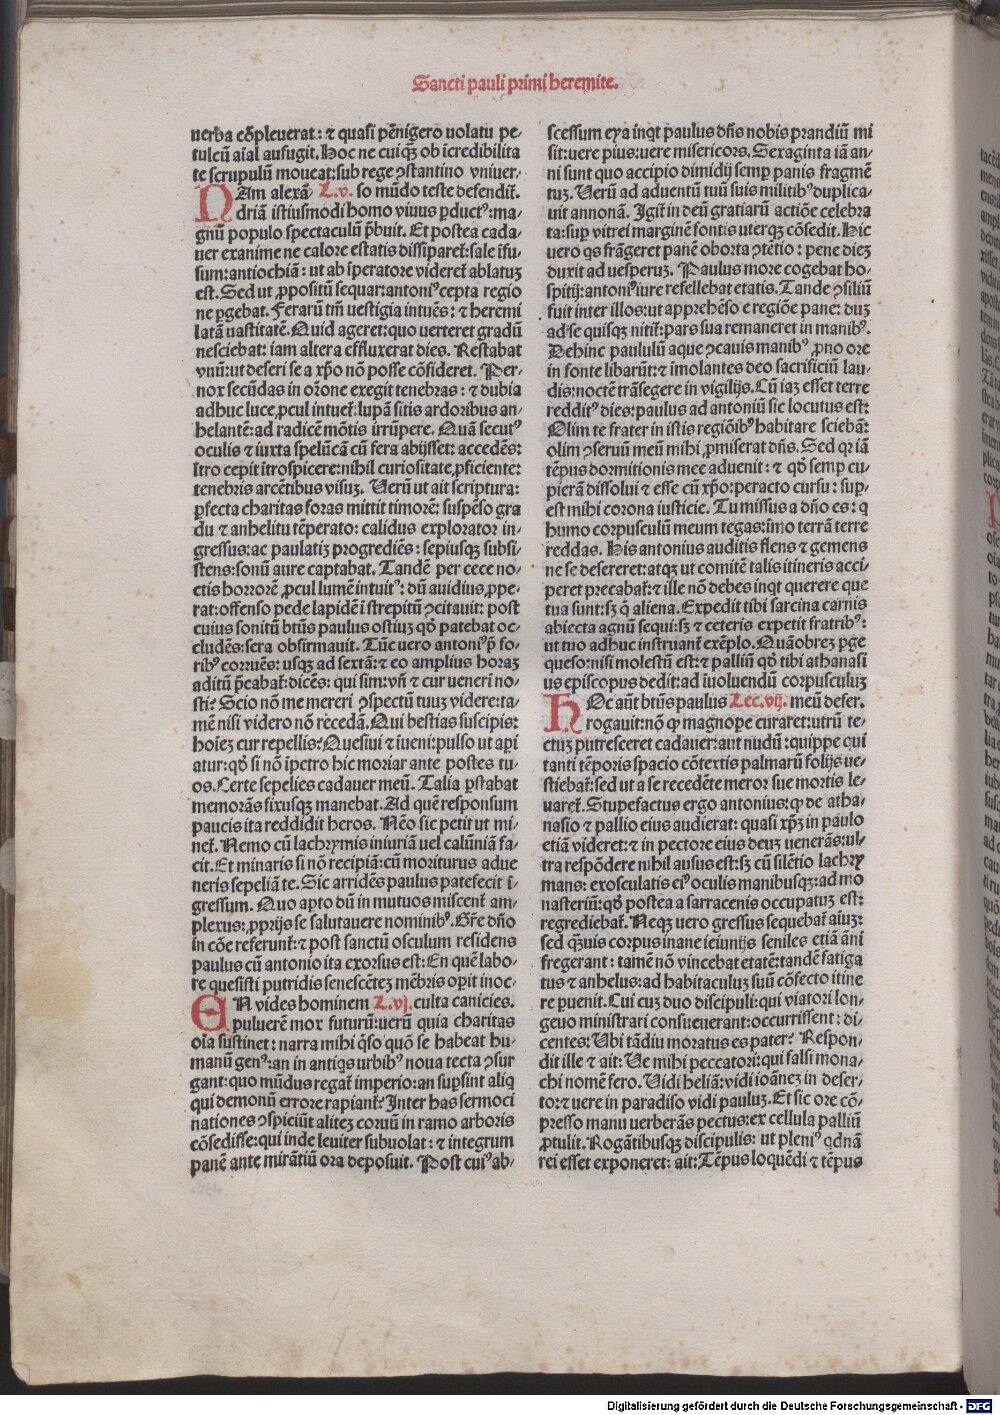 Sancti pauli primi heremite.
uerba cōpleuerat: ⁊ quasi pēnigero uolatu pe-
tulcū aīal aufugit. Hoc ne cuiq̄ȝ ob īcredibilita
te scrupulū moueat: sub rege ꝯstantino vniuer-
NAm alexā- L.v. so mūdo teste defendit̄.
driā istiusmodi homo viuus ꝑductꝰ: ma-
gnū populo spectaculū p̄buit. Et postea cada-
uer exanime ne calore estatis dissiparet̄: sale īfu-
sum: antiochiā: ut ab īperatore videret̄ ablatuȝ
est. Sed ut ꝓpositū sequar: antoniꝰ cepta regio
ne ꝑgebat. Ferarū tm̄ uestigia intuēs: ⁊ heremi
latā uastitatē. Quid ageret: quo uerteret gradū
nesciebat: iam altera effluxerat dies. Restabat
vnū: ut deseri se a xp̄o nō posse cōfideret. Per-
nox secūdas in or̄one exegit tenebras: ⁊ dubia
adhuc luce, ꝓcul intuet̄: lupā sitis ardoribus an-
helantē: ad radicē mōtis irrūpere. Quā secutꝰ
oculis ⁊ iuxta spelūcā cū fera abijsset: accedēs:
ītro cepit ītrospicere: nihil curiositate ꝓficiente:
tenebris arcētibus visuȝ. Verū ut ait scriptura:
ꝑfecta charitas foras mittit timorē: suspēso gra
du ⁊ anhelitu tēperato: calidus explorator in-
gressus: ac paulatiȝ progrediēs: sepiusqȝ subsi-
stens: sonū aure captabat. Tandē per cece no-
ctis horrorē ꝓcul lumē intuitꝰ: dū auidius ꝓpe-
rat: offenso pede lapidē ī strepitū ꝯcitauit: post
cuius sonitū bt̄us paulus ostiuȝ qd̄ patebat oc-
cludēs: sera obfirmauit. Tūc uero antoniꝰ p̄ fo-
ribꝰ corruēs: usqȝ ad sextā: ⁊ eo amplius horaȝ
aditū p̄cabat̄: dicēs: qui sim: vn̄ ⁊ cur ueneri no-
sti? Scio nō me mereri ꝯspectū tuuȝ videre: ta-
mē nisi videro nō recedā. Qui bestias suscipis:
hoīeȝ cur repellis? Quesiui ⁊ īueni: pulso ut aꝑi
atur: qd̄ si nō īpetro hic moriar ante postes tu-
os. Certe sepelies cadauer meū. Talia ꝑstabat
memorās fixusqȝ manebat. Ad quē responsum
paucis ita reddidit heros. Nēo sic petit ut mi-
net̄. Nemo cū lachrymis iniuriā uel calūniā fa-
cit. Et minaris si nō recipiā: cū moriturus adue
neris sepeliā te. Sic arridēs paulus patefecit ī-
gressum. Quo aꝑto dū in mutuos miscent̄ am-
plexus: ꝓprijs se salutauere nominibꝰ. Gr̄e dn̄o
in cōe referunt̄: ⁊ post sanctū osculum residens
paulus cū antonio ita exorsus est: En quē labo-
re quesisti putridis senescēteȝ mēbris oꝑit inoc-
EN vides hominem L.vj. culta canicies.
puluerē mox futurū: uerū quia charitas
oīa sustinet: narra mihi q̄so quō se habeat hu-
manū genꝰ: an in antiqs urbibꝰ noua tecta ꝯsur
gant: quo mūdus regat̄ imperio: an suꝑsint aliq
qui demonū errore rapiant̄? Inter has sermoci
nationes ꝯspiciūt aliteȝ coruū in ramo arboris
cōsedisse: qui inde leuiter subuolat: ⁊ integrum
panē ante mirātiū ora deposuit. Post cuiꝰ ab-
scessum eya inqt paulus dn̄s nobis prandiū mi
sit: uere pius: uere misericors. Sexaginta iā an-
ni sunt quo accipio dimidij semꝑ panis fragmē
tuȝ. Verū ad aduentū tuū suis militibꝰ duplica-
uit annonā. Igit̄ in deū gratiarū actiōe celebra
ta: suꝑ vitrei marginē fontis uterqȝ cōsedit. Hic
uero qs frāgeret panē oborta ꝯtētio: pene dieȝ
duxit ad uesperuȝ. Paulus more cogebat ho-
spitij: antoniꝰ iure refellebat etatis. Tande ꝯsiliū
fuit inter illos: ut apprehēso e regiōe pane: duȝ
ad se quisqȝ nitit̄: pars sua remaneret in manibꝰ.
Dehinc paululū aque ꝯcauis manibꝰ ꝓno ore
in fonte libarūt: ⁊ īmolantes deo sacrificiū lau-
dis: noctē trāsegere in vigilijs. Cū iaȝ esset terre
redditꝰ dies: paulus ad antoniū sic locutus est:
Olim te frater in istis regiōibꝰ habitare sciebā:
olim ꝯseruū meū mihi ꝓmiserat dn̄s. Sed qꝛ iā
tēpus dormitionis mee aduenit: ⁊ qd̄ semꝑ cu-
pierā dissolui ⁊ esse cū xp̄o: peracto cursu: suꝑ-
est mihi corona iusticie. Tu missus a dn̄o es: q
humo corpusculū meum tegas: īmo terrā terre
reddas. His antonius auditis flens ⁊ gemens
ne se desereret: atqȝ ut comitē talis itineris acci-
peret precabat̄: ⁊ ille nō debes inqt querere que
tua sunt: sȝ q̄ aliena. Expedit tibi sarcina carnis
abiecta agnū sequi: sȝ ⁊ ceteris expetit fratribꝰ:
ut tuo adhuc instruant̄ exēplo. Quāobreȝ ꝑge
queso: nisi molestū est: ⁊ palliū qd̄ tibi athanasi
us episcopus dedit: ad īuoluendū corpusculuȝ
HOc aūt bt̄us paulus Lec.vij. meū defer.
rogauit: nō ꝙ magnopē curaret: utrū te-
ctuȝ putresceret cadauer: aut nudū: quippe qui
tanti tēporis spacio cōtextis palmarū folijs ue-
stiebat̄: sed ut a se recedēte meror sue mortis le-
uaret̄. Stupefactus ergo antonius: ꝙ de atha-
nasio ⁊ pallio eius audierat: quasi xp̄ȝ in paulo
etiā videret: ⁊ in pectore eius deuȝ uenerās: ul-
tra respōdere nihil ausus est: sȝ cū silētio lachry
mans: exosculatis eiꝰ oculis manibusqȝ: ad mo
nasteriū: qd̄ postea a sarracenis occupatuȝ est:
regrediebat̄. Neqȝ uero gressus sequebat̄ aīuȝ:
sed q̄ȝuis corpus inane ieiunijs seniles etiā āni
fregerant: tamē nō vincebat etatē: tandē fatiga
tus ⁊ anhelus: ad habitaculū suū cōfecto itine
re ꝑuenit. Cui cuȝ duo discipuli: qui viatori lon-
geuo ministrari consueuerant: occurrissent: di-
centes: Ubi tādiu moratus es pater? Respon-
dit ille ⁊ ait: Ve mihi peccatori: qui falsi mona-
chi nomē fero. Vidi heliā: vidi ioāneȝ in deser-
to: ⁊ uere in paradiso vidi pauluȝ. Et sic ore cō-
presso manu uerberās pectus: ex cellula palliū
ꝓtulit. Rogātibusqȝ discipulis: ut pleniꝰ qdnā
rei esset exponeret: ait: Tēpus loquēdi ⁊ tēpus
Digitalisierung gefördert durch die Deutsche Forschungsgemeinschaft - DFG